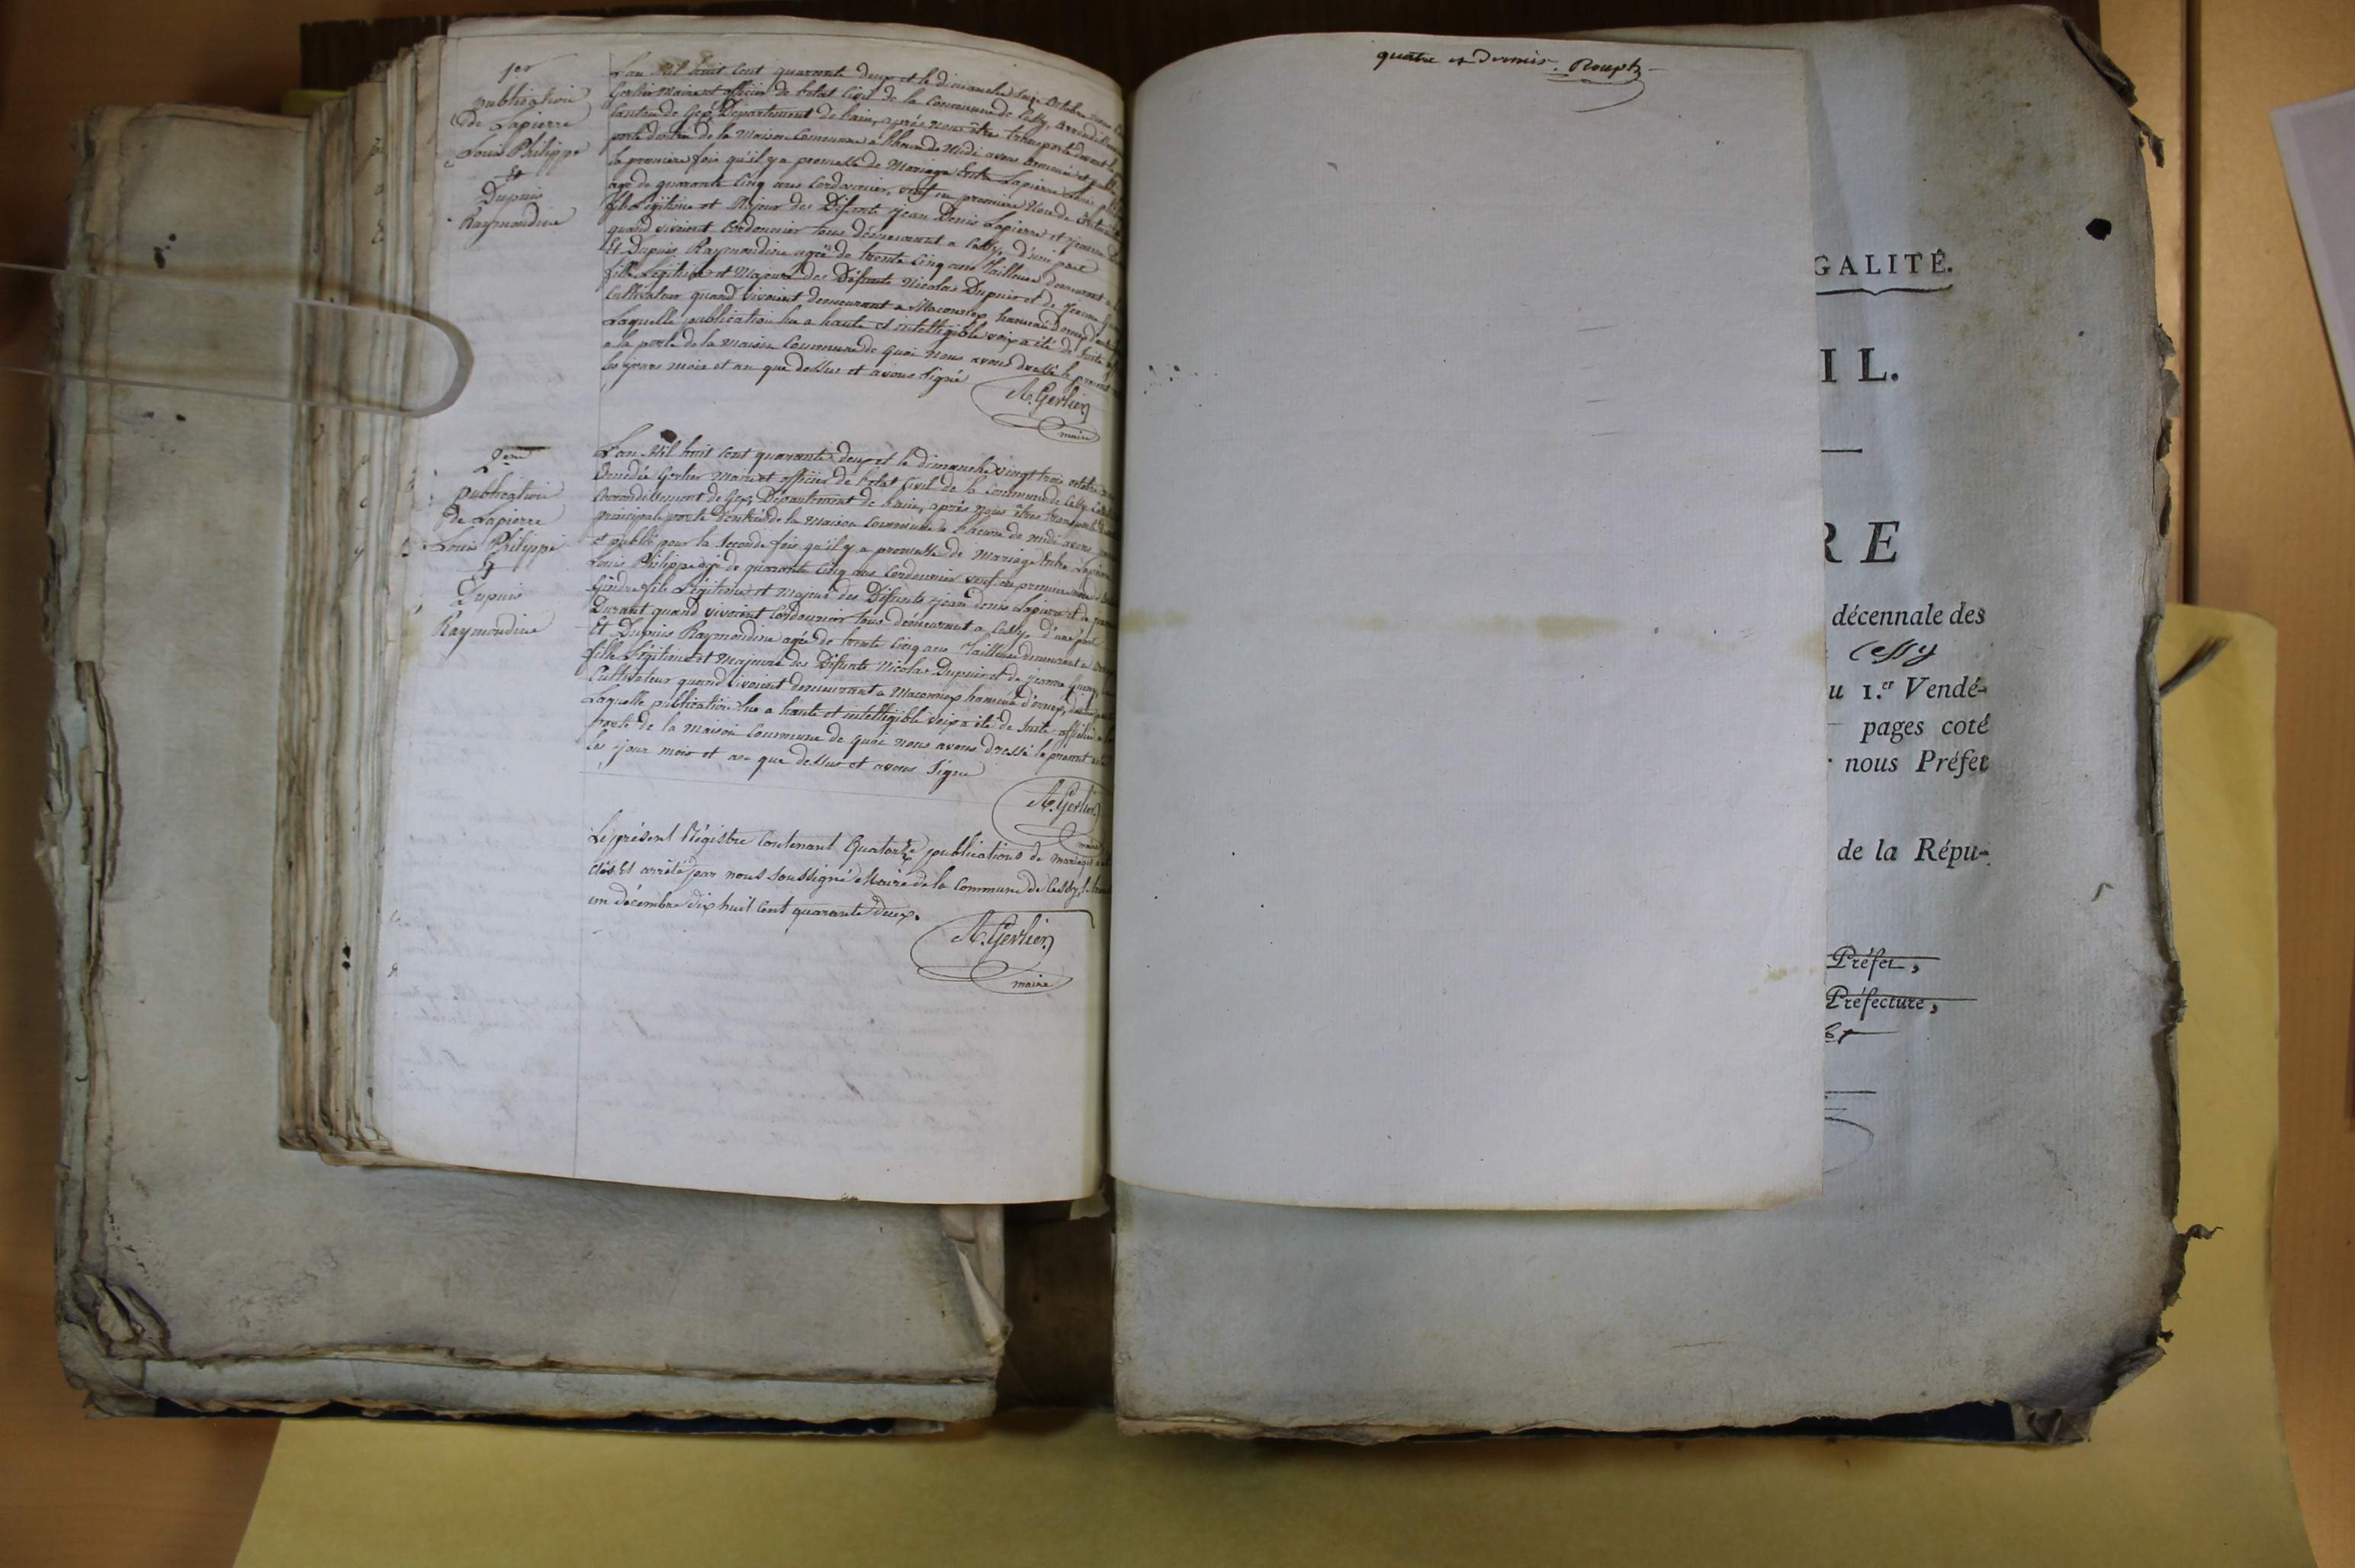 1er
publication
de Lapierre
Louis Philippe
et
Dupuis
Raymondine
L'an Mil huit cent quarante deux et le dimanche seize octobre
Gerlier Maire et officier de l'etat Civil de la Commune de Cessy,
Canton de Gex, Département de l'ain, après nous être transporté devant la
porte d'entrée de la Maison Commune a l'heure de Midi avons annoncé et
la première fois qu'il y a promesse de Mariage Entre Lapierre Louis
agé de quarante Cinq ans Cordonnier, veuf en première Noce de
fils Légitime et Majeur des Défunts Jean Denis Lapierre et
quand vivaient Cordonnier tous démeurant a Cessy, d'une part
Et Dupuis Raymondine agée de trente Cinq ans Tailleuse demeurant a
fille Légitime et Majeure des Défunts Nicolas Dupuis et de Jeanne
Cultivateur quand vivaient demeurant a Maconnex hameau d'ornex
Laquelle publication lue a haute et intelligible voix a été de suite
a la porte de la maison Commune de quoi nous avons dressé le present
les jours mois et an que dessus et avons signé
A. Gerlier
maire
2eme
publication
de Lapierre
Louis Philippe
Et
Dupuis
Raymondine
L'an Mil huit cent quarante deux et le dimanche vingt trois octobre
Amédée Gerlier Maire et officier de l'etat Civil de la Commune de Cessy
arrondissement de Gex, Département de l'ain, après nous être transporté
principale porte d'entrée de la Maison Commune a l'heure de midi avons
et publié pour la Seconde fois qu'il y a promesse de Mariage Entre Lapierre
Louis Philippe agé de quarante Cinq ans Cordonnier veuf en premiere
fils Légitime et Majeur des Défunts Jean denis Lapierre et de
Durant quand vivaient Cordonnier tous démeurant a Cessy, d'une part
Et Dupuis Raymondine agée de trente Cinq ans Tailleuse demeurant a
fille Légitime et Majeure des Défunts Nicolas Dupuis et de Jeanne
Cultivateur quand vivaient demeurant a Maconnex hameau d'ornex,
Laquelle publication lue a haute et intelligible voix a été de suite affichée a
porte de la maison Commune de quoi nous avons dressé le present
les jour mois et an que dessus et avons signé
A. Gerlier
maire
Le présent Régistre Contenant Quatorze publications de mariages
clos Et arrêté par nous soussigné Maire de la Commune de Cessy,
un décembre dix huit cent quarante deux.
A. Gerlier
maire
quatre et dernier. Rouph
GALITÉ.
IL.
RE
décennale des
Cessy
u 1.er Vendé-
pages coté
nous Préfet
de la Répu-
Préfet,
Préfecture,